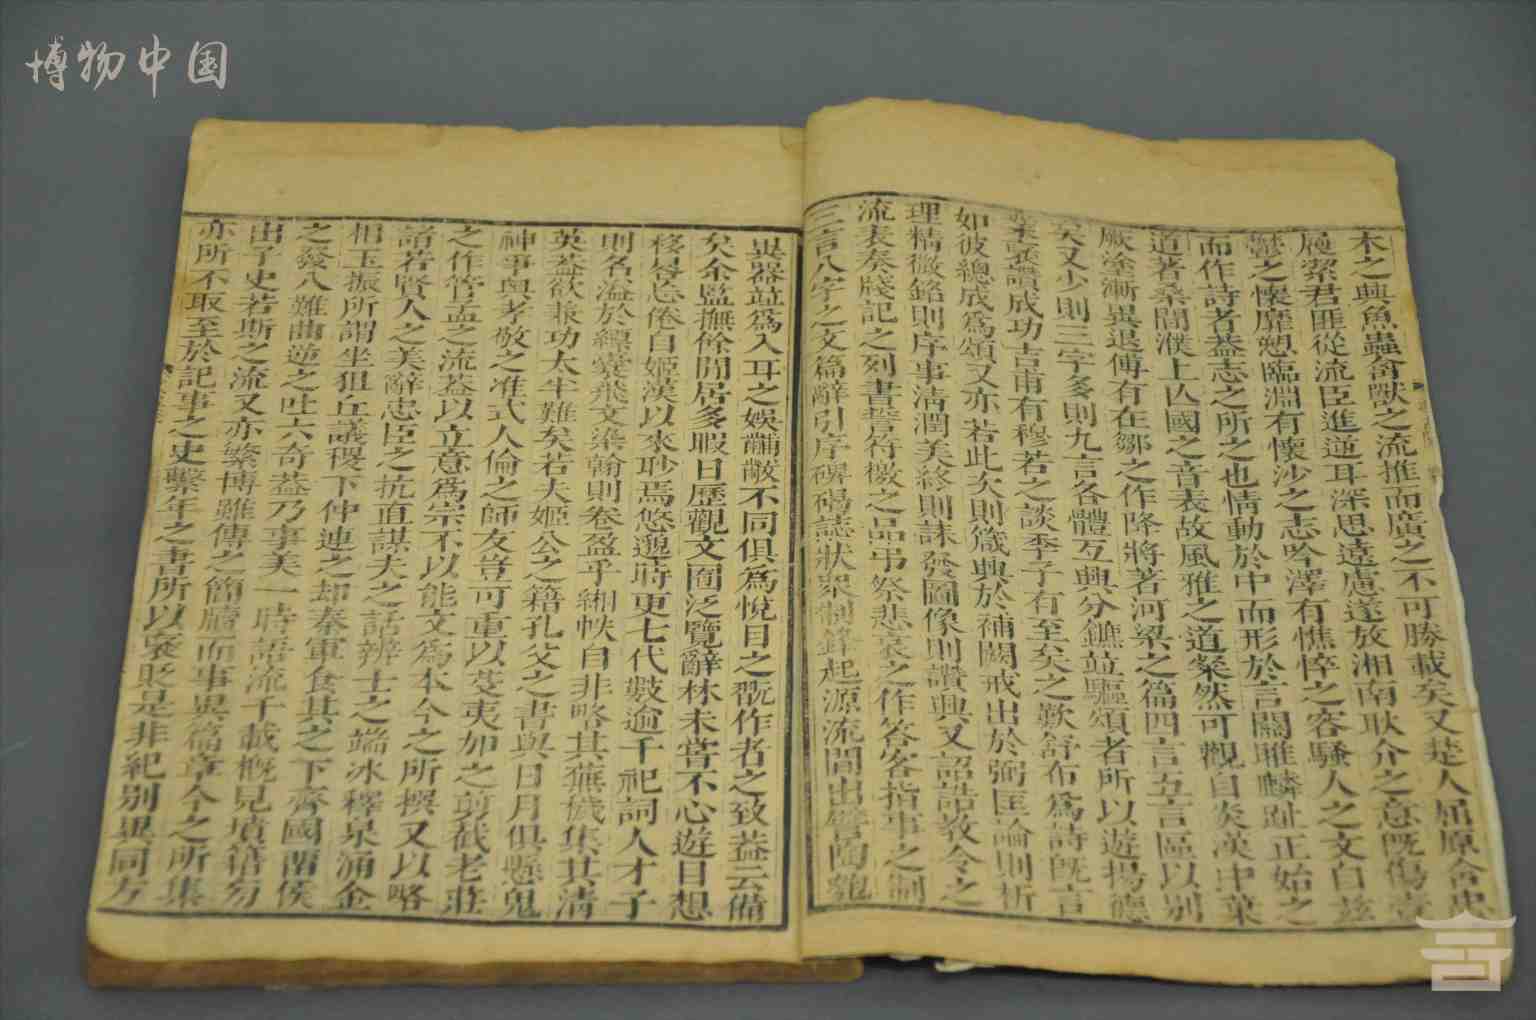 博物中国
木之興魚蟲禽獸之流推而廣之不可勝載矣又楚人屈原含忠
履潔君匪從流臣進逆耳深思遠慮遂放湘南耿介之意既傷壹
鬱之懷靡愬臨淵有懷沙之志吟澤有憔悴之容騷人之文自茲
而作詩者葢志之所之也情動於中而形於言關雎麟趾正始之
道著桑間濮上亾國之音表故風雅之道粲然可觀自炎漢中葉
厥塗漸異退傅有在鄒之作降將著河梁之篇四言五言區以別
矣又少則三字多則九言各體互興分鑣並驅頌者所以遊揚德
業褒讚成功吉甫有穆若之談季子有至矣之歎舒布爲詩既言
如彼總成爲頌又亦若此次則箴興於補闕戒出於弼匡論則析
理精微銘則序事清潤美終則誄發圖像則讚興又詔誥教令之
流表奏牋記之列書誓符檄之品弔祭悲哀之作答客指事之制
三言八字之文篇辭引序碑碣誌狀衆制鋒起源流間出譬陶匏
異器並爲入耳之娛黼黻不同俱爲悅目之翫作者之致葢云備
矣余監撫餘閒居多暇日歷觀文囿泛覽辭林未嘗不心遊目想
移晷忘倦自姬漢以來眇焉悠邈時更七代數逾千祀詞人才子
則名溢於縹囊飛文染翰則卷盈乎緗帙自非略其蕪穢集其清
英葢欲兼功太半難矣若夫姬公之籍孔父之書與日月俱懸鬼
神爭奧孝敬之准式人倫之師友豈可重以芟夷加之剪截老莊
之作管孟之流葢以立意爲宗不以能文爲本今之所撰又以略
諸若賢人之美辭忠臣之抗直謀夫之話辨士之端冰釋泉涌金
相玉振所謂坐狙丘議稷下仲連之却秦軍食其之下齊國留侯
之發八難曲逆之吐六奇葢乃事美一時語流千載概見墳籍旁
出子史若斯之流又亦繁博雖傳之簡牘而事異篇章今之所集
亦所不取至於記事之史繫年之書所以褒貶是非紀別異同方